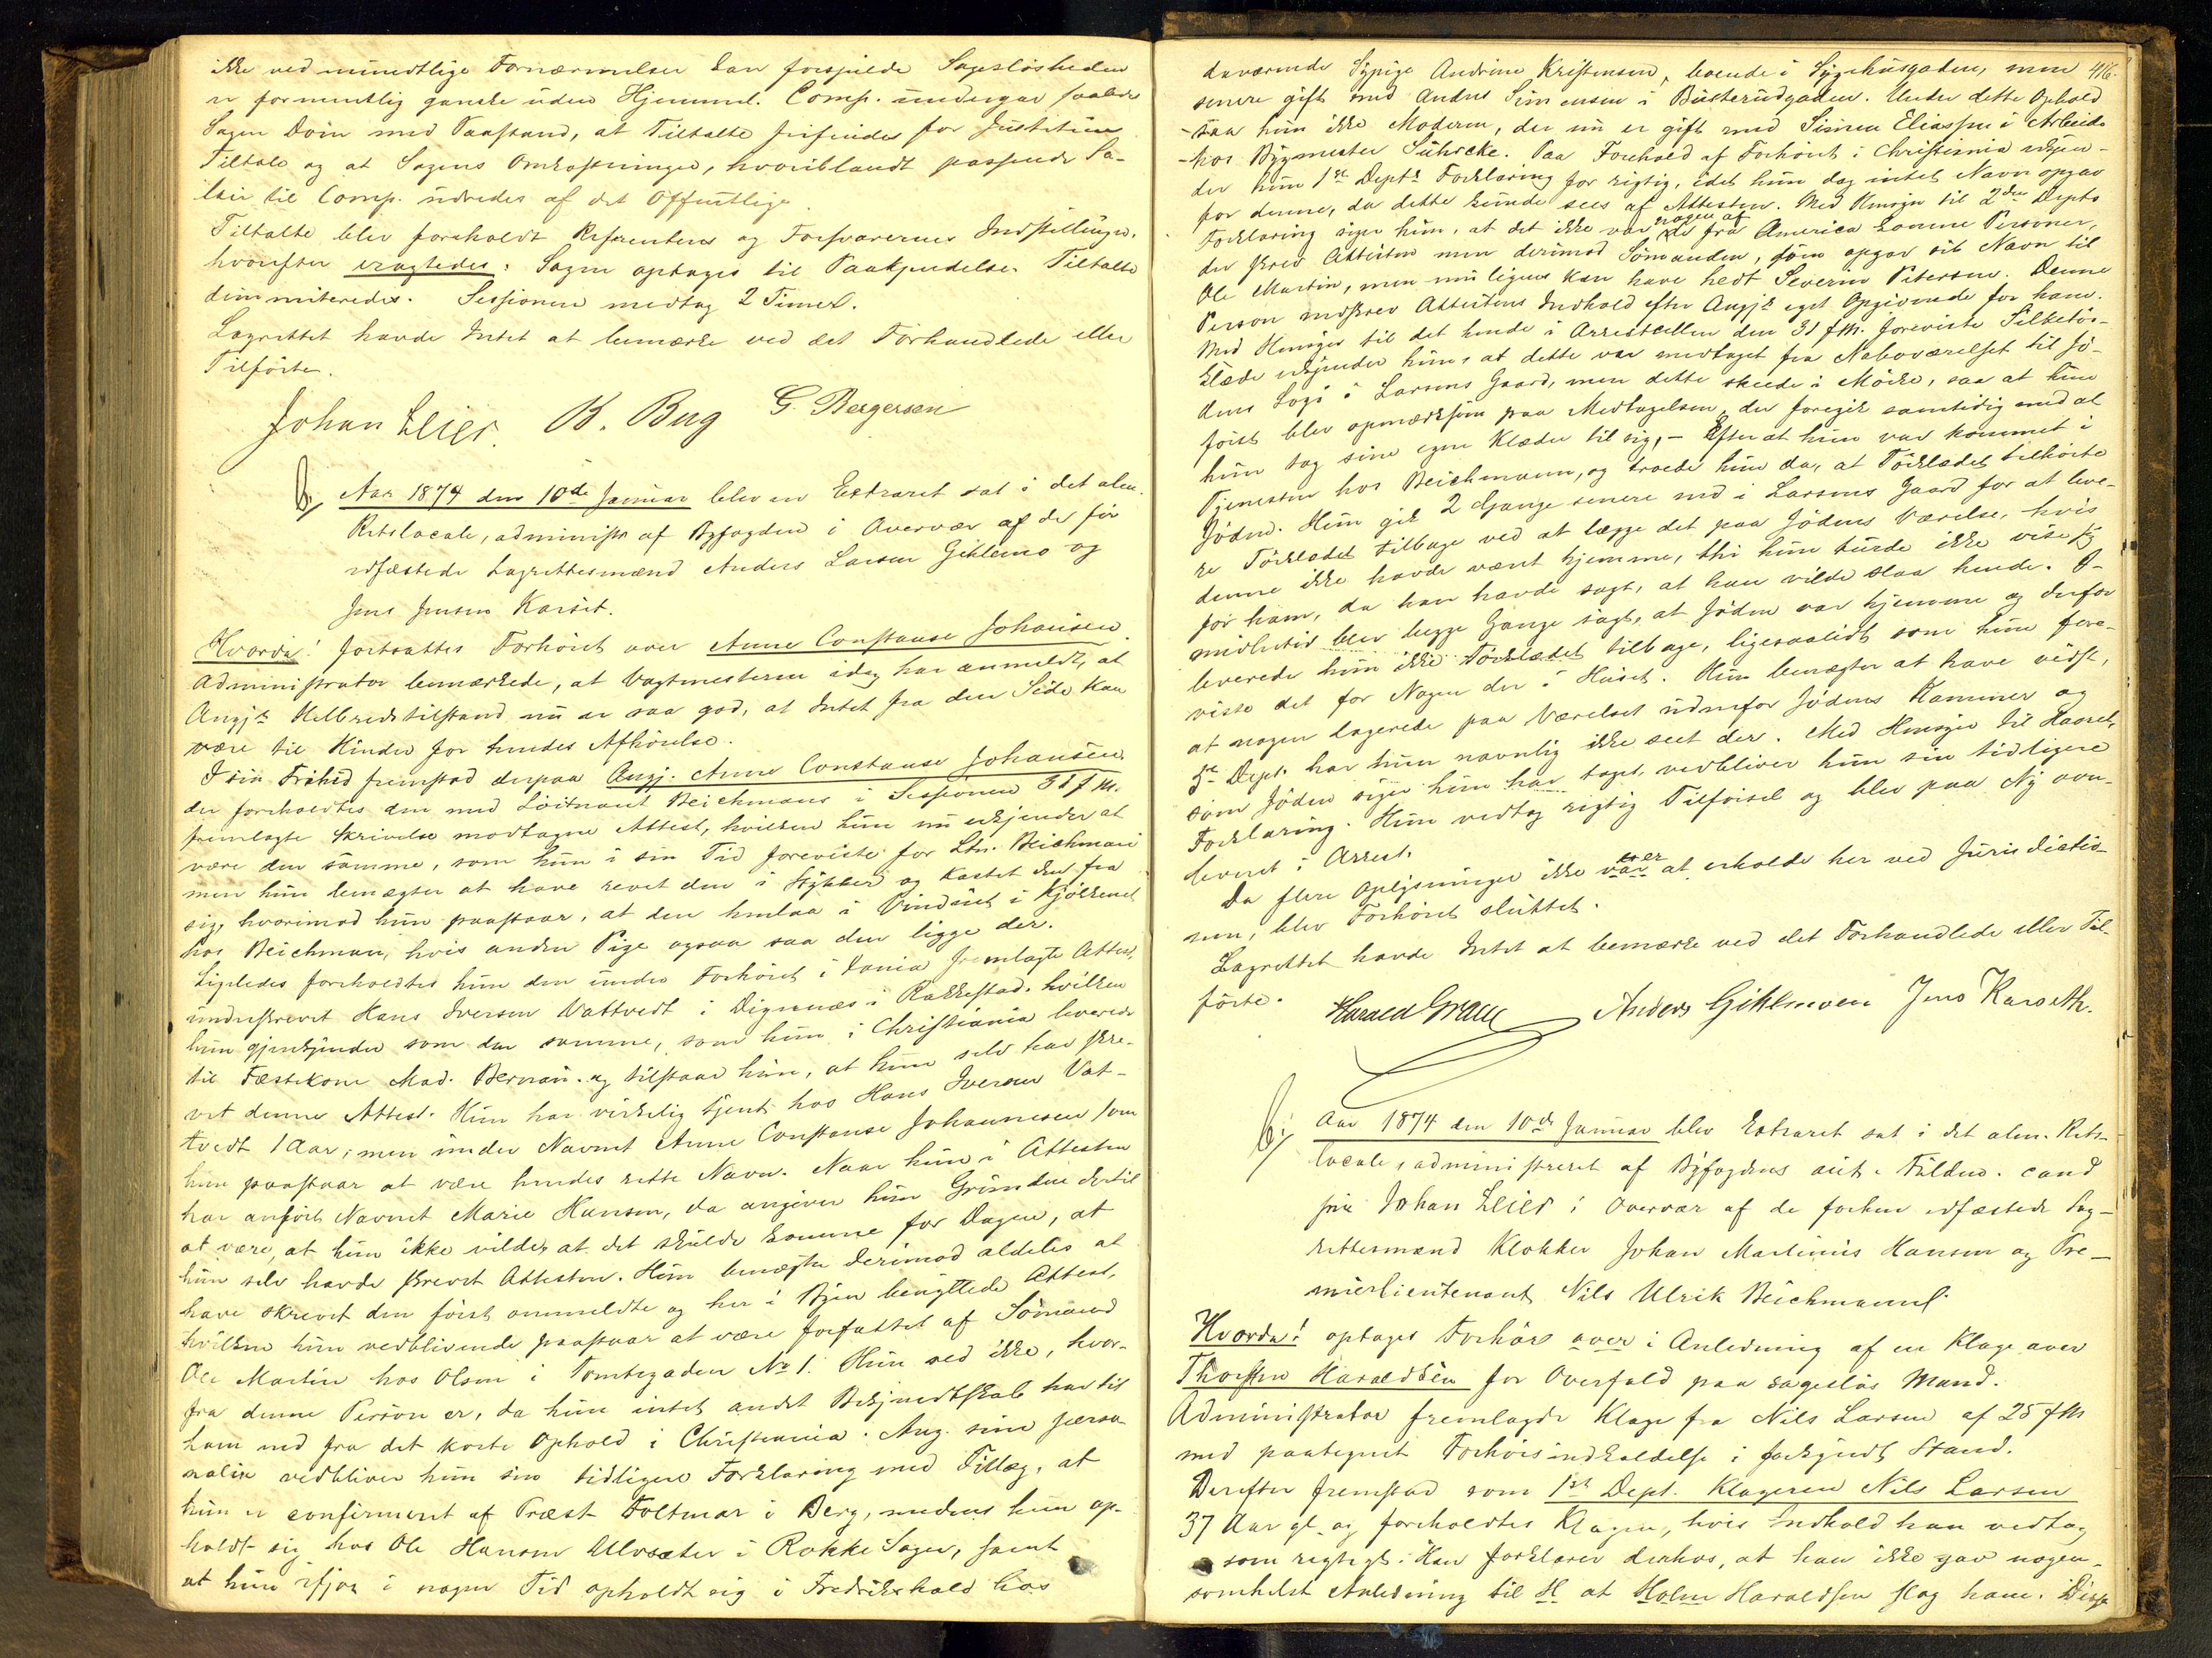 ikke ved mundtlige Fornærmelser kan forspilde Sagesløsheden
er formentlig ganske uden Hjemmel. Comp. undergav saaledes
Sagen Dom med Paastand, at Tiltalte frifindes for Justitiens
Tiltale og at Sagens Omkostninger, hvoriblandt passende Sa-
lair til Comp. udredes af det Offentlige.
Tiltalte blev foreholdt Referentens og Forsvarerens Indstillinger.
hvorefter eragtedes: Sagen optages til Paakjendelse. Tiltalte
dimmiteredes. Sessionen medtog 2 Timer.
Lagrettet havde Intet at bemærke ved det Forhandlede eller
Tilførte.
Johan Leier. B. Bug G. Bergersen
Aar 1874 den 10de Januar blev en Extraret sat i det alm.
Retslocale, administr. af Byfogden i Overvær af de før
edfæstede Lagrettesmænd Anders Larsen Giklemo og
Jens Jensen Karset.
Hvorda! fortsattes Forhøret over Anne Constanse Johansen.
Administrator bemærkede, at Vagtmesteren idag har anmeldt, at
Angjs Helbredstilstand nu er saa god, at Intet fra den Side kan
være til Hinder for hendes Afhørelse.
I sin Frihed fremstod derpaa Angj. Anne Constanse Johansen
der foreholdtes den med Løitnant Beichmans i Sessionen 31 f. M.
fremlagte Skrivelse modtagne Attest, hvilken hun nu erkjender at
være den samme, som hun i sin Tid foreviste for Ltn. Beichman
men hun benægter at have revet den i Stykker og kastet den fra
sig, hvorimod hun paastaar, at den henlaa i Vinduet i Kjøkkenet
hos Beichman, hvis anden Pige ogsaa saa den ligge der.
Ligeledes foreholdtes hun den under Forhøret i Dania fremlagte Attest,
underskrevet Hans Iversen Vattvedt i Digernæs i Rakkestad. hvilken
hun gjenkjender som den samme, som hun i Christiania leverede
til Fæstekone Mad. Bernau. og tilstaar hun, at hun selv har skre-
vet denne Attest. Hun har virkelig tjent hos Hans Iversen Vat-
tvedt 1 Aar, men under Navnet Anne Constanse Johannesen som
hun paastaar at være hendes rette Navn. Naar hun i Attesten
har anført Navnet Marie Hansen, da angiver hun Grunden dertil
at være, at hun ikke vilde, at det skulde komme for Dagen, at
hun selv havde skrevet Attesten. Hun benægter derimod aldeles at
have skrevet den først anmeldte og her i Byen benyttede Attest,
hvilken hun vedblivende paastaar at være forfattet af Sømand
Ole Martin hos Olsen i Tomtegaden No 1. Hun ved ikke, hvor-
fra denne Person er, da hun intet andet Bekjendtskab har til
ham end fra det korte Ophold i Christiania. Ang. sine perso-
nalia vedbliver hun sin tidligere Forklaring med Tillæg, at
hun er confirmeret af Præst Foltmar i Berg, medens hun op-
holdt sig hos Ole Hansen Ulvsæter i Rokke Sogn, samt
at hun ifjor i nogen Tid opholdt sig i Fredrikshald hos
416.
daværende Sypige Andrine Kristensen, boende i Sygehusgaden, men
senere gift med Andres Simensen i Busterudgaden. Under dette Ophold
saa hun ikke Moderen, der nu er gift med Simen Eliassen i Arbeide
hos Bygmester Sührcke. Paa Forehold af Forhøret i Christiania erkjen-
der hun 1ste Depts Forklaring for rigtig, idet hun dog intet Navn opgav
for denne, da dette kunde sees af Attesten. Med Hensyn til 2den Depts
Forklaring siger hun, at det ikke var nogen af de fra America komne Personer,
der skrev Attesten men derimod Sømanden, som opgav sit Navn til
Ole Martin, men muligens kan have hedt Severin Petersen. Denne
Person nedskrev Attestens Indhold efter Angjs eget Opgivende for ham.
Med Hensyn til det hende i Arrestcellen den 31 f. M. foreviste Silketør-
klæde erkjender hun, at dette var medtaget fra Naboværelset til Jø-
dens Logi i Larsens Gaard, men dette skeede i Mørke, saa at hun
først blev opmærksom paa Medtagelsen, der foregik samtidig med at
hun tog sine egne Klæder til sig, – efter at hun var kommet i
Tjenesten hos Beichmann, og troede hun da, at Tørklædet tilhørte
Jøden. Hun gik 2 Gange senere ned i Larsens Gaard for at leve-
re Tørklædet tilbage ved at lægge det paa Jødens Værelse, hvis
denne ikke havde været hjemme, thi hun turde ikke vise sig
for ham, da han havde sagt, at han vilde slaa hende. I-
midlertid blev begge Gange sagt, at Jøden var hjemme og derfor
leverede hun ikke Tørklædet tilbage, ligesaalidt som hun fore-
viste det for Nogen der i Huset. Hun benægter at have vidst,
at nogen logerede paa Værelset udenfor Jødens Kammer og
3die Dept. har hun navnlig ikke seet der. Med Hensyn til Haaret,
som Jøden siger hun har taget, vedbliver hun sin tidligere
Forklaring. Hun vedtog rigtig Tilførsel og blev paa Ny over-
leveret i Arrest.
Da flere Oplysninger ikke var er at erholde her ved Jurisdictio-
nen, blev Forhøret sluttet.
Lagrettet havde Intet at bemærke ved det Forhandlede eller Til-
førte.
Harald Graae Anders Giklemoen Jens Karseth.
Aar 1874 den 10de Januar blev Extraret sat i det alm. Rets-
locale, administreret af Byfogdens aut. Fuldm. cand
jur Johan Leier i Overvær af de forhen edfæstede Lag-
rettesmænd Klokker Johan Martinius Hansen og Pre-
mierlieutenant Nils Ulrik Beichmann.
Hvorda! optages Forhør over i Anledning af en Klage over
Thorsten Haraldsen for Overfald paa sagesløs Mand.
Administrator fremlagde Klage fra Nils Larsen af 25 f M
med paategnet Forhørsindkaldelse i forkyndt Stand.
Derefter fremstod som 1ste Dept. Klageren Nils Larsen
37 Aar gl. og foreholdtes Klagen, hvis Indhold han vedtog
som rigtigt. Han forklarer derhos, at han ikke gav nogen-
somhelst Anledning til H at Holm Haraldsen slog ham.